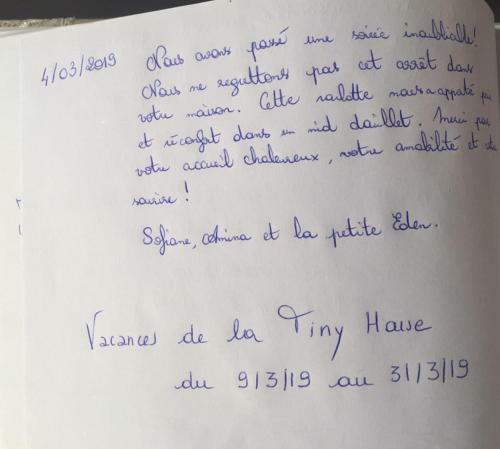 4/03/2019 Nous avons passé une soirée inoubliable!
Nous ne regrettons pas cet arrêt dans
votre maison. Cette roulotte nous a appaté
et réconfort dans un nid d'aillet. Merci pour
votre accueil chaleureux, votre amabilité et
sourire !
Sofiane, Amina et la petite Eden.
Vacances de la Tiny House
du 9/3/19 au 31/3/19